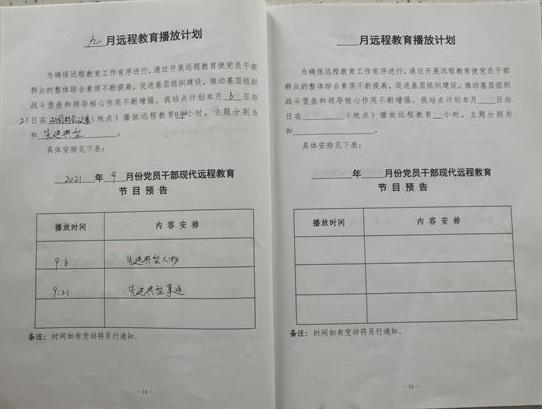 九 月远程教育播放计划
为确保远程教育工作有序进行，通过开展远程教育使党员干部
群众的整体综合素质不断提高，促进基层组织建设，推动基层组织
战斗堡垒和领导核心作用不断增强。我站点计划本月 6 日与
21日在 （地点）播放远程教育 小时，主题分别为
和 先进典型 。
具体安排见下表：
2021 年 9 月份党员干部现代远程教育
节目预告
播放时间 内容安排
9.6 先进典型人物
9.21 先进典型事迹
备注：时间如有变动将另行通知。
月远程教育播放计划
为确保远程教育工作有序进行，通过开展远程教育使党员干部
群众的整体综合素质不断提高，促进基层组织建设，推动基层组织
战斗堡垒和领导核心作用不断增强。我站点计划本月 日与
日在 （地点）播放远程教育 小时，主题分别为
和 。
具体安排见下表：
年 月份党员干部现代远程教育
节目预告
播放时间 内容安排
备注：时间如有变动将另行通知。